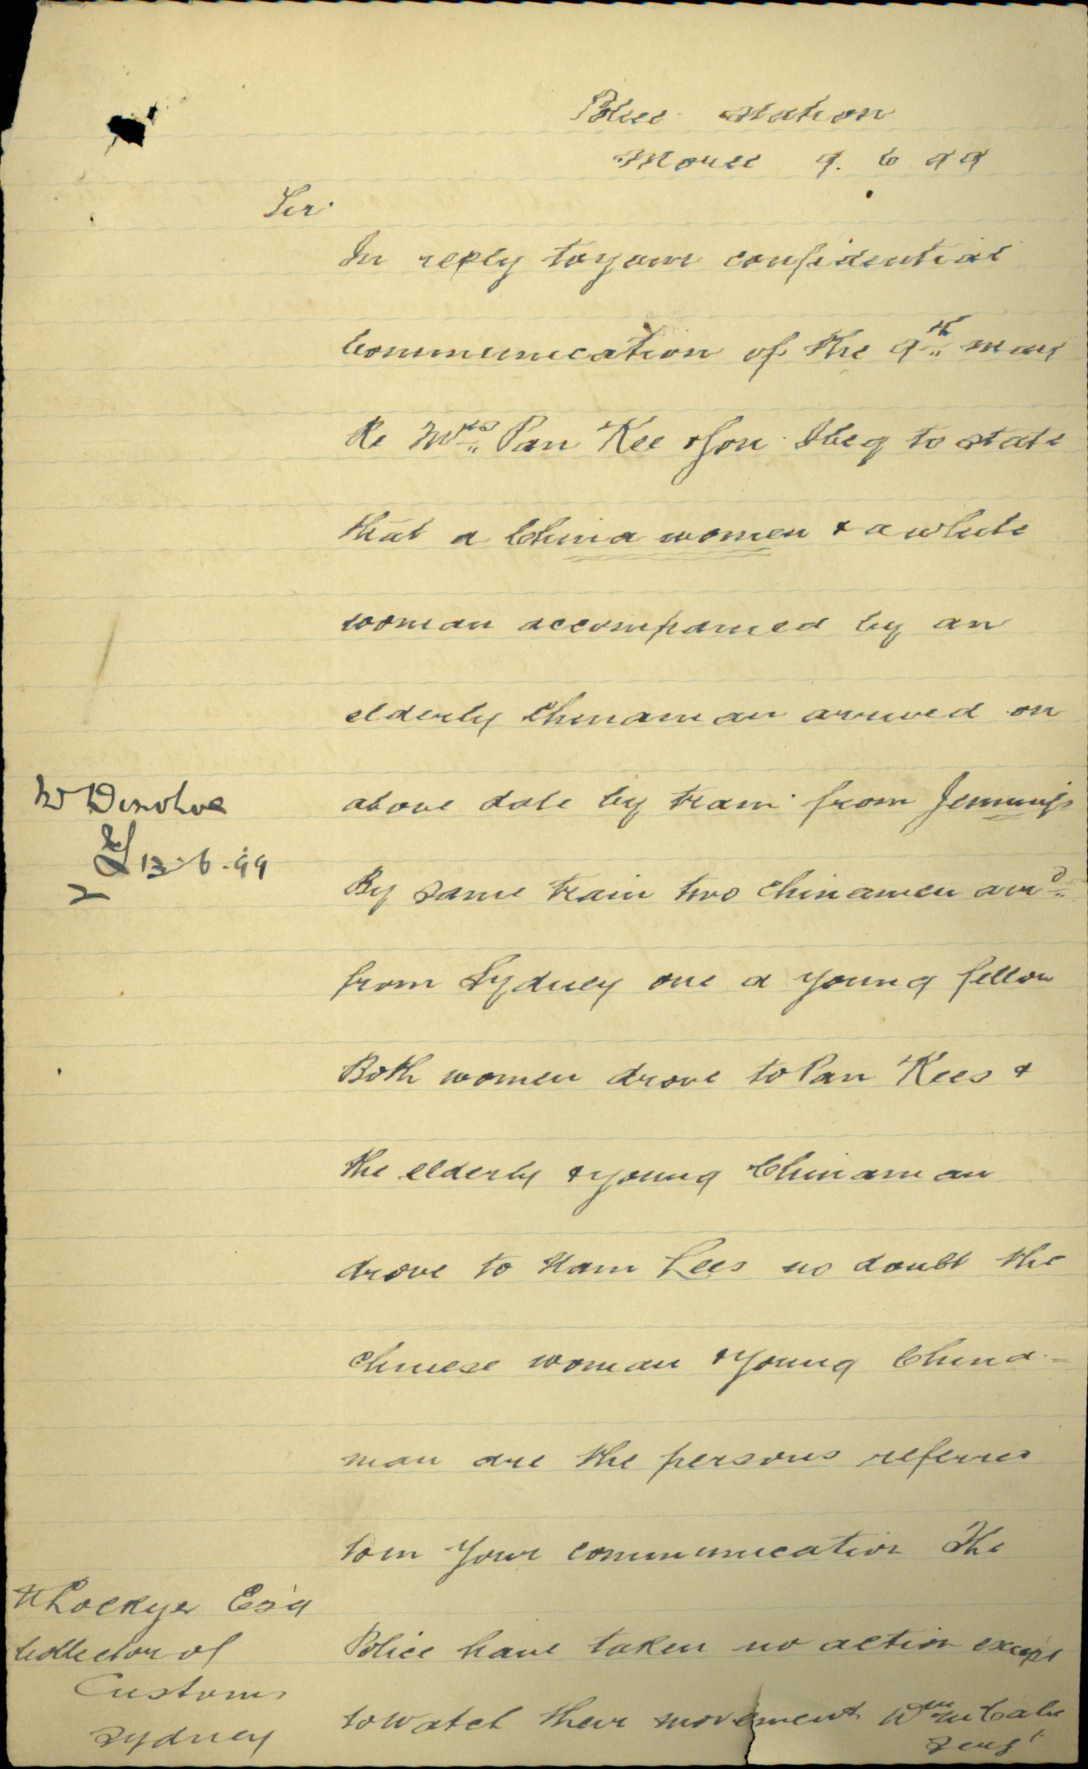 Police Station
Moree 9. 6 99
Sir
In reply to your confidential
Communication of the 9th May
Re Mrs Pan Kee & Son I beg to state
that a China women & a white
woman accompanied by an
elderly Chinaman arrived on
above date by train from Jennings
By same train two Chinamen arrd
from Sydney one a young fellow
Both women drove to Pan Kees &
the elderly & young Chinaman
drove to Ham Lees no doubt the
Chinese woman & young China-
man are the persons referred
to in your communication The
Police have taken no action except
to watch their movement Wm McCabe
Sergt
Mr Donohoe
13-6-99
N Lockyer Esq
Collector of
Customs
Sydney